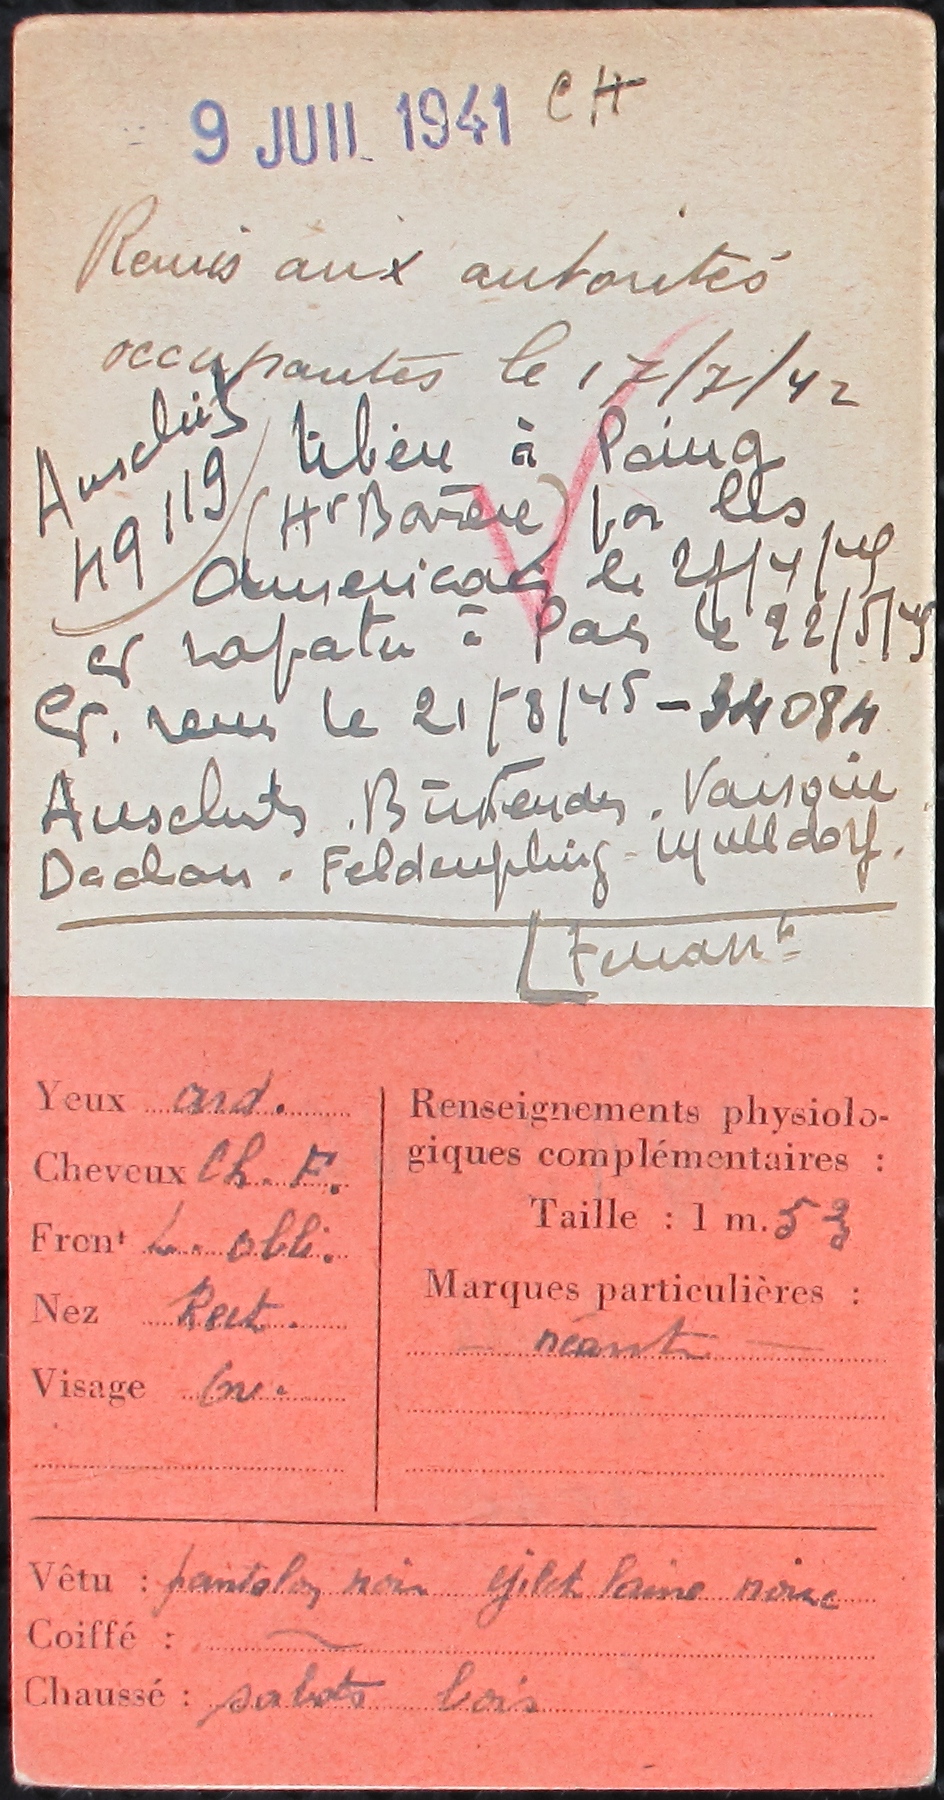 9 JUIL 1941 CH
Remis aux autorités
occupantes le 17/7/42
Auschits
49119
libéré à Poing
(Hte Bavière) par les
américains le 27/4/45
et rapatrié à Paris le 22/5/45
Ct. revu le 21/8/45 - 34084
Auschvits. Birkenau. Varsovie
Dachau. Feldenphing - Mulldorf.
Yeux ard.
Cheveux Ch. F.
Front L. obli.
Nez Rect.
Visage ov.
Renseignements physiolo-
giques complémentaires :
Taille : 1 m. 53
Marques particulières :
néant
Vêtu : pantalon noir gilet laine noire
Coiffé :
Chaussé : sabots bois